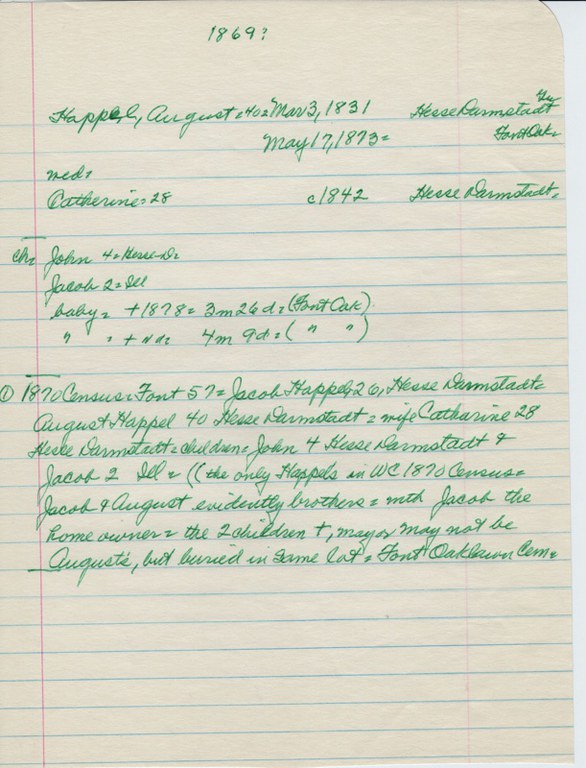 1869?
Happel, August = 40 = Mar 3, 1831 Hesse Darmstadt
May 17, 1873 = Font Oak =
med =
Catherine = 28 c 1842 Hesse Darmstadt =
ch = John 4 = Hesse-D =
Jacob 2 = Ill
baby = + 1878 = 3m 26d = (Font Oak)
" = + nd = 4m 9d = ( " " )
① 1870 Census = Font 57 = Jacob Happel, 26, Hesse Darmstadt =
August Happel 40 Hesse Darmstadt = wife Catharine 28
Hesse Darmstadt = children = John 4 Hesse Darmstadt &
Jacob 2 Ill = ((the only Happels in WC 1870 Census =
Jacob & August evidently brothers = with Jacob the
home owner = the 2 children +, may or may not be
August's, but buried in same lot = Font Oaklawn Cem =